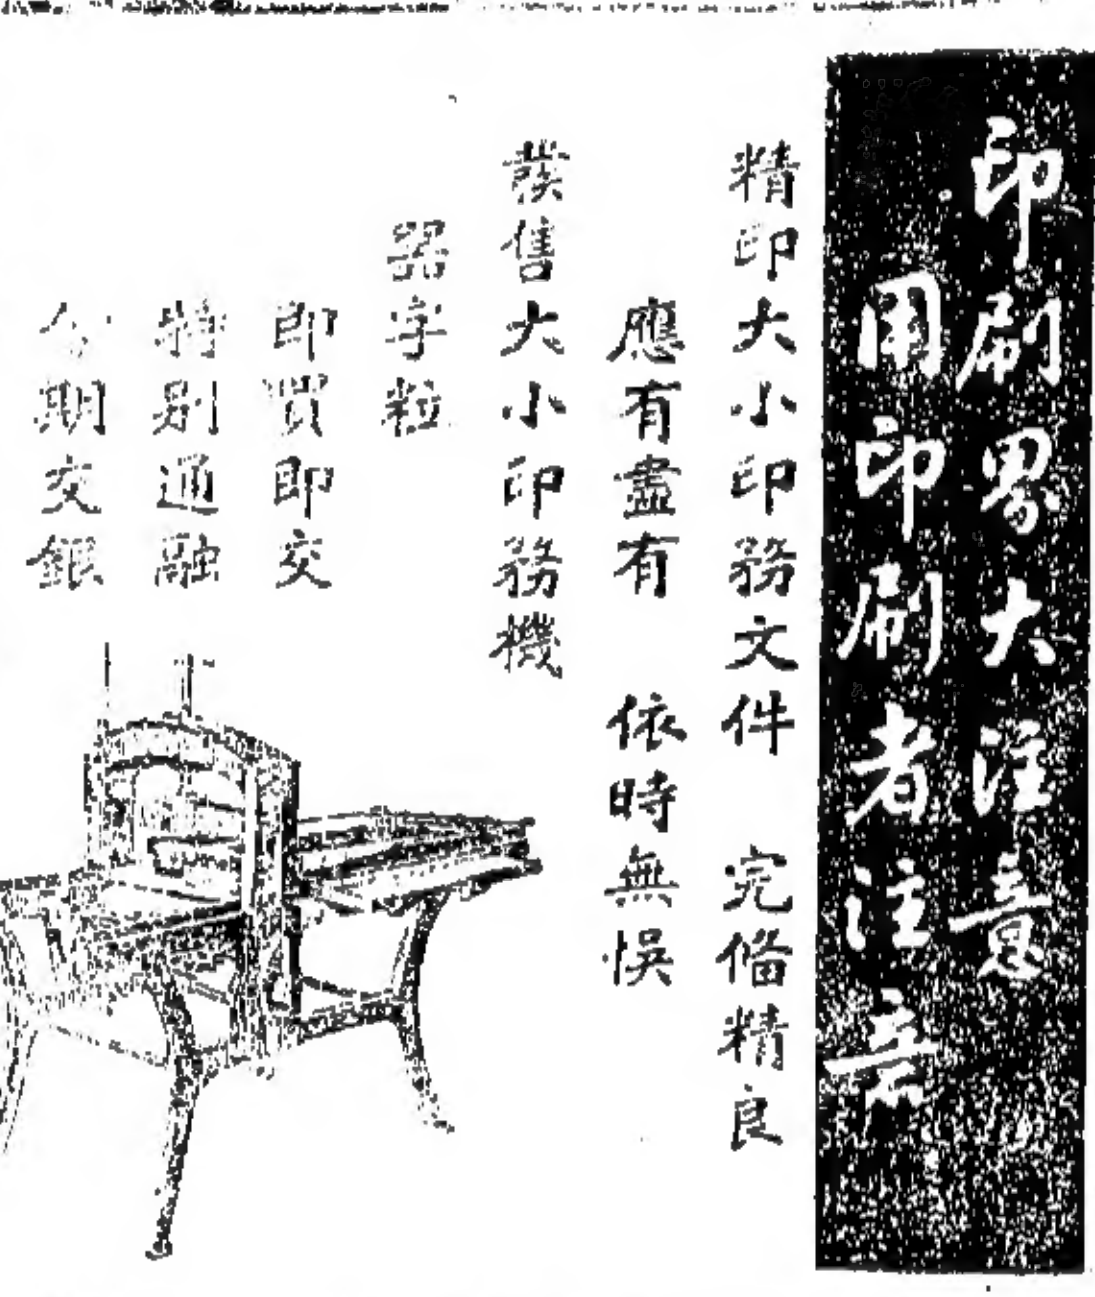 印刷界大注意
用印刷者注意
精印大小印務文件 完俻精良
應有盡有 依時無悞
發售大小印務機
器字粒
即買即交
特别通融
分期交銀